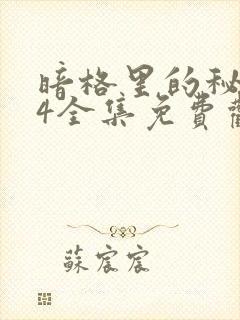 暗格里的秘
4全集免費
蘇宸宸